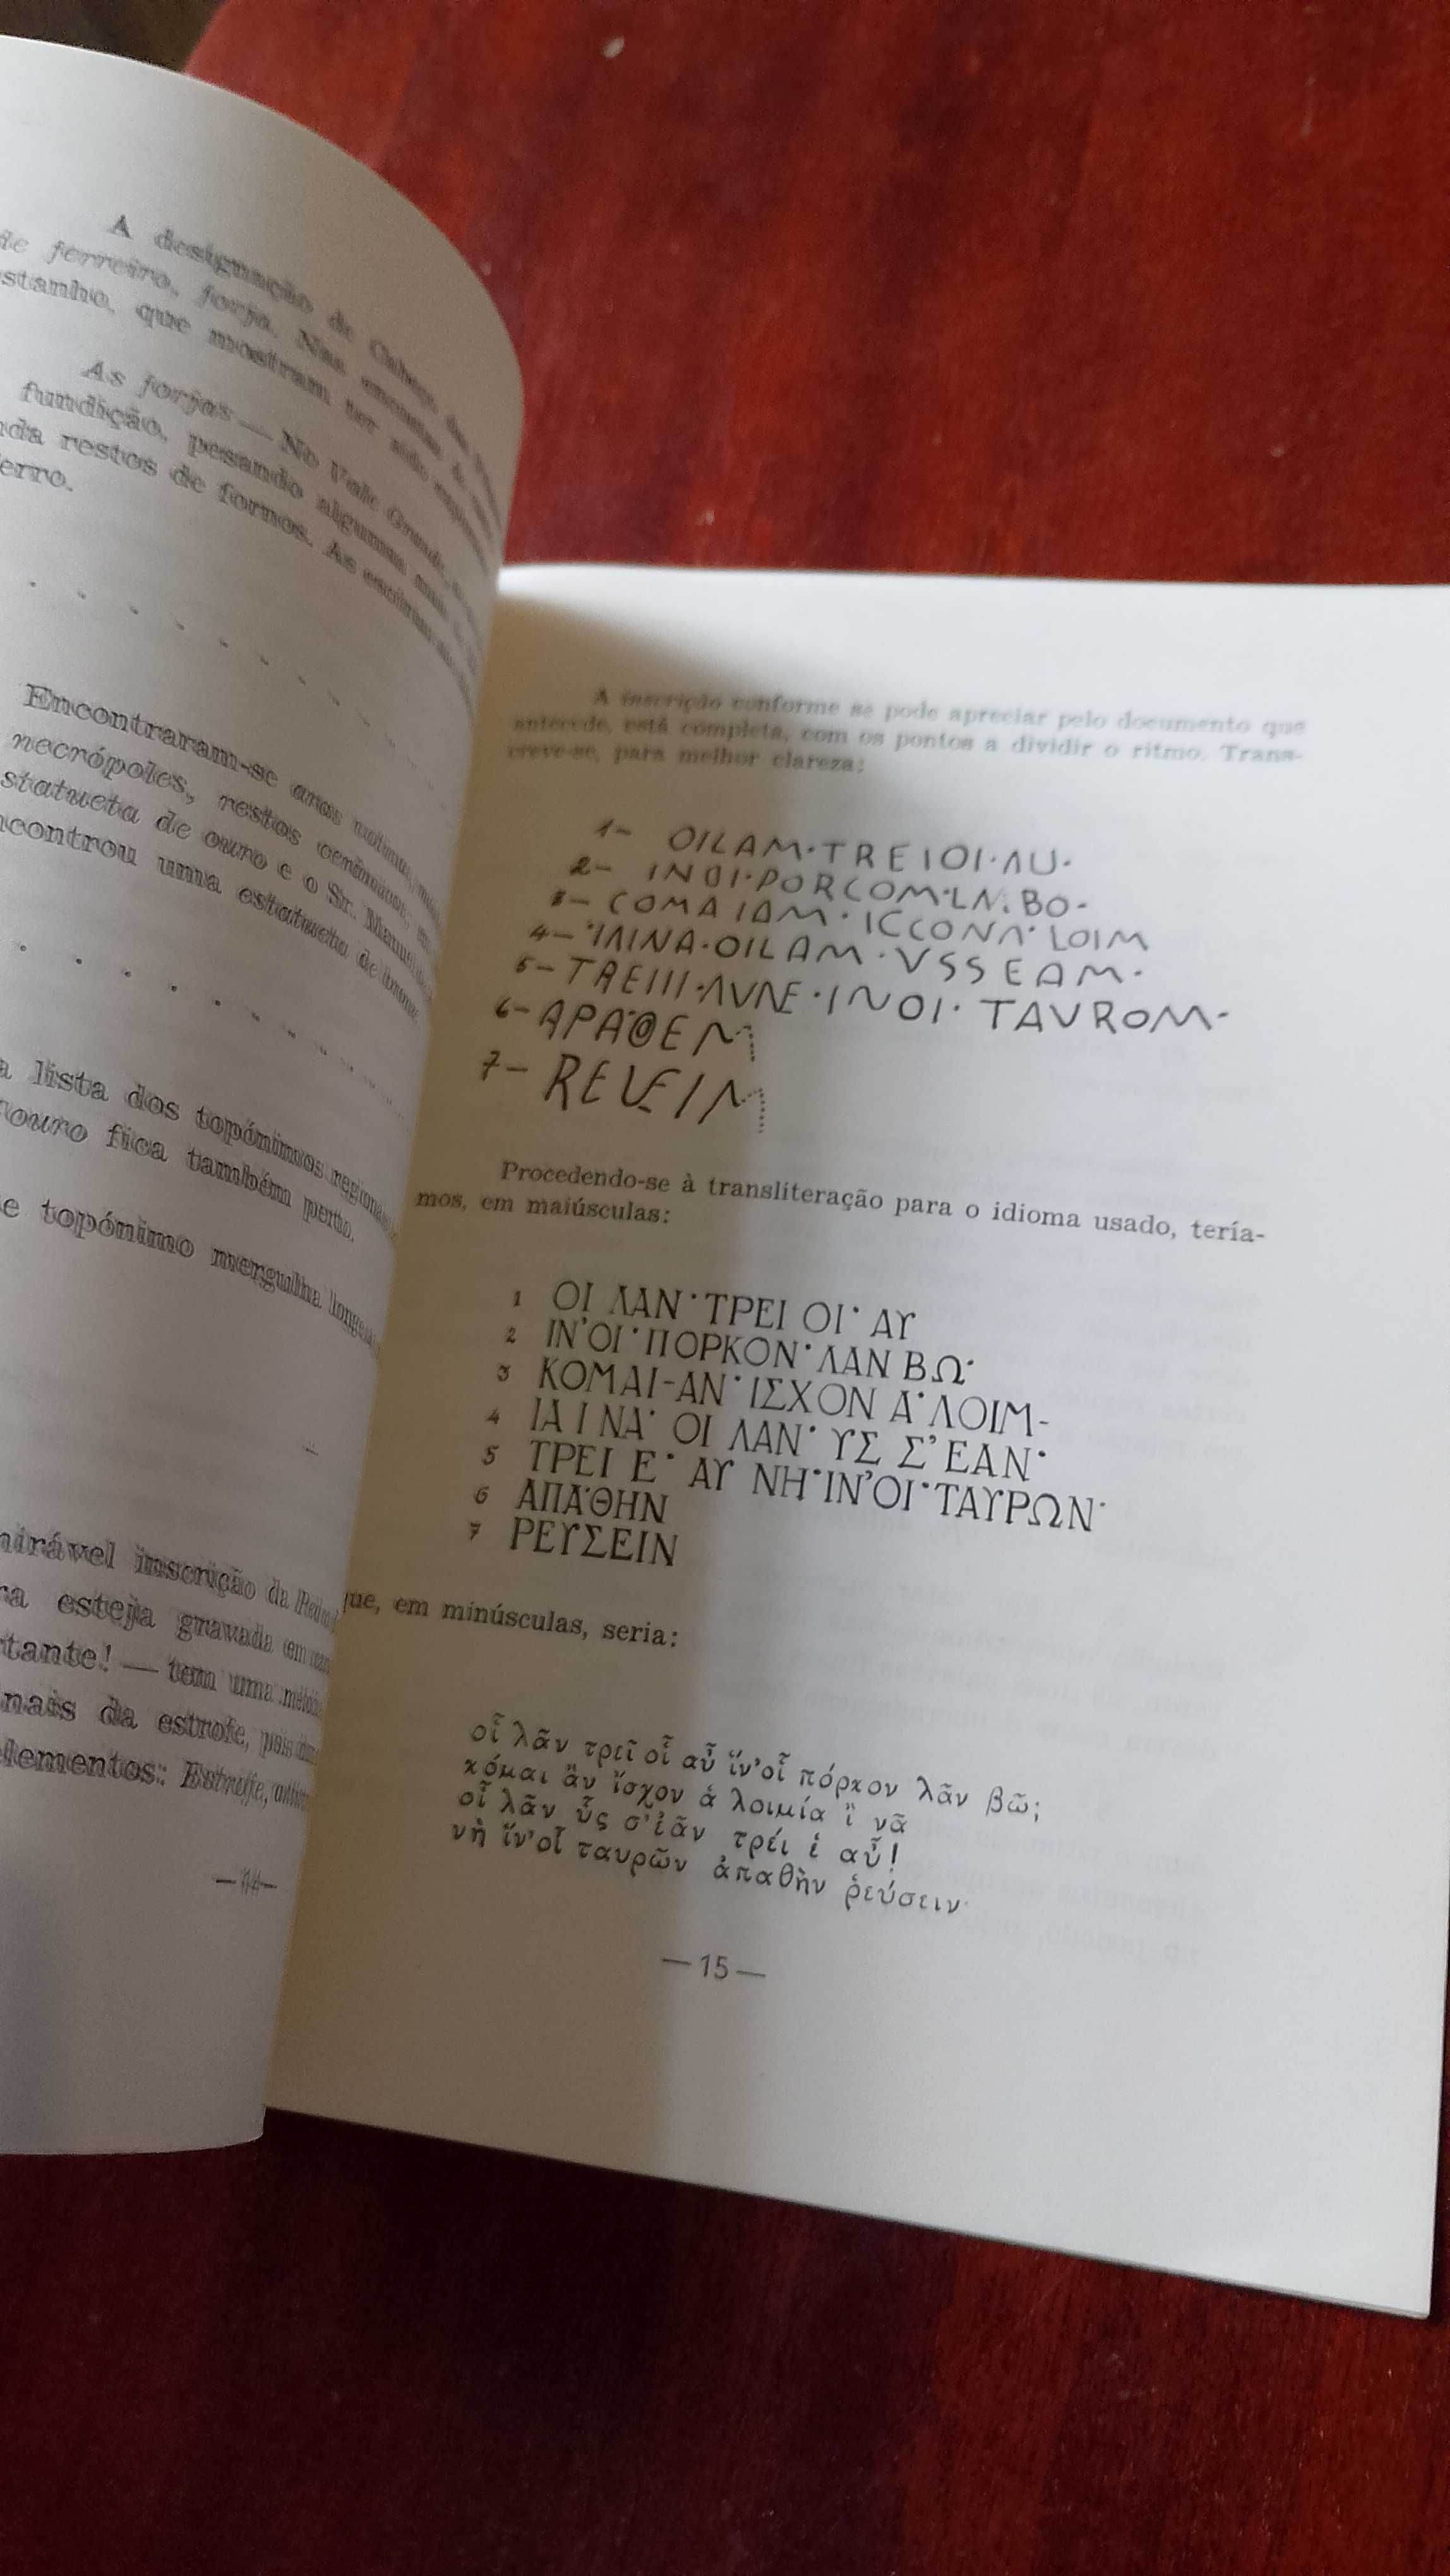 A designação de Cabeço das
de ferreiro, forja. Nas encostas
stanho, que mostram ter sido
As forjas — No Vale Grande,
fundição, pesando algumas mais
restos de fornos. As escórias
Encontraram-se aras votivas,
necrópoles, restos cerâmicos,
de ouro e o Sr. Manuel
uma estatueta de bronze
lista dos topónimos regionais
fica também perto.
topónimo mergulha
inscrição da
esteja gravada em
— tem uma
da estrofe, pois
Estrofe,
—14—
A inscrição conforme se pode apreciar pelo documento que
antecede, está completa, com os pontos a dividir o ritmo. Trans-
creve-se, para melhor clareza:
1- OILAM·TREIOI·ΛU·
2- INOI·PORCOM·LΛ·BO-
3- COMAIAM·ICCONΛ·LOIM
4- ·IΛINA·OILAM·VSSEAM·
5- TREIII·ΛVNE·INOI·TAVROM-
6- APA@EM
7- REVEIM
Procedendo-se à transliteração para o idioma usado, tería-
mos, em maiúsculas:
1 ΟΙ ΛΑΝ·ΤΡΕΙ ΟΙ· ΑΥ
2 ΙΝ'ΟΙ·ΠΟΡΚΟΝ·ΛΑΝ ΒΩ·
3 ΚΟΜΑΙ-ΑΝ·ΙΣΧΟΝ Α·ΛΟΙΜ-
4 ΙΑ Ι ΝΑ· ΟΙ ΛΑΝ· ΥΣ Σ'ΕΑΝ·
5 ΤΡΕΙ Ε· ΑΥ ΝΗ·ΙΝ'ΟΙ·ΤΑΥΡΩΝ·
6 ΑΠΑΘΗΝ
7 ΡΕΥΣΕΙΝ
que, em minúsculas, seria:
οἷ λᾶν τρεῖ οἷ αὖ ἵν'οἷ πόρκον λᾶν βῶ;
κόμαι ἂν ἴσχον ἁ λοιμία ἵ νᾶ
οἷ λᾶν ὗς σ'ἐᾶν τρεί ἑ αὖ!
νὴ ἵν'οἷ ταυρῶν ἀπαθὴν ῥεύσειν·
—15—